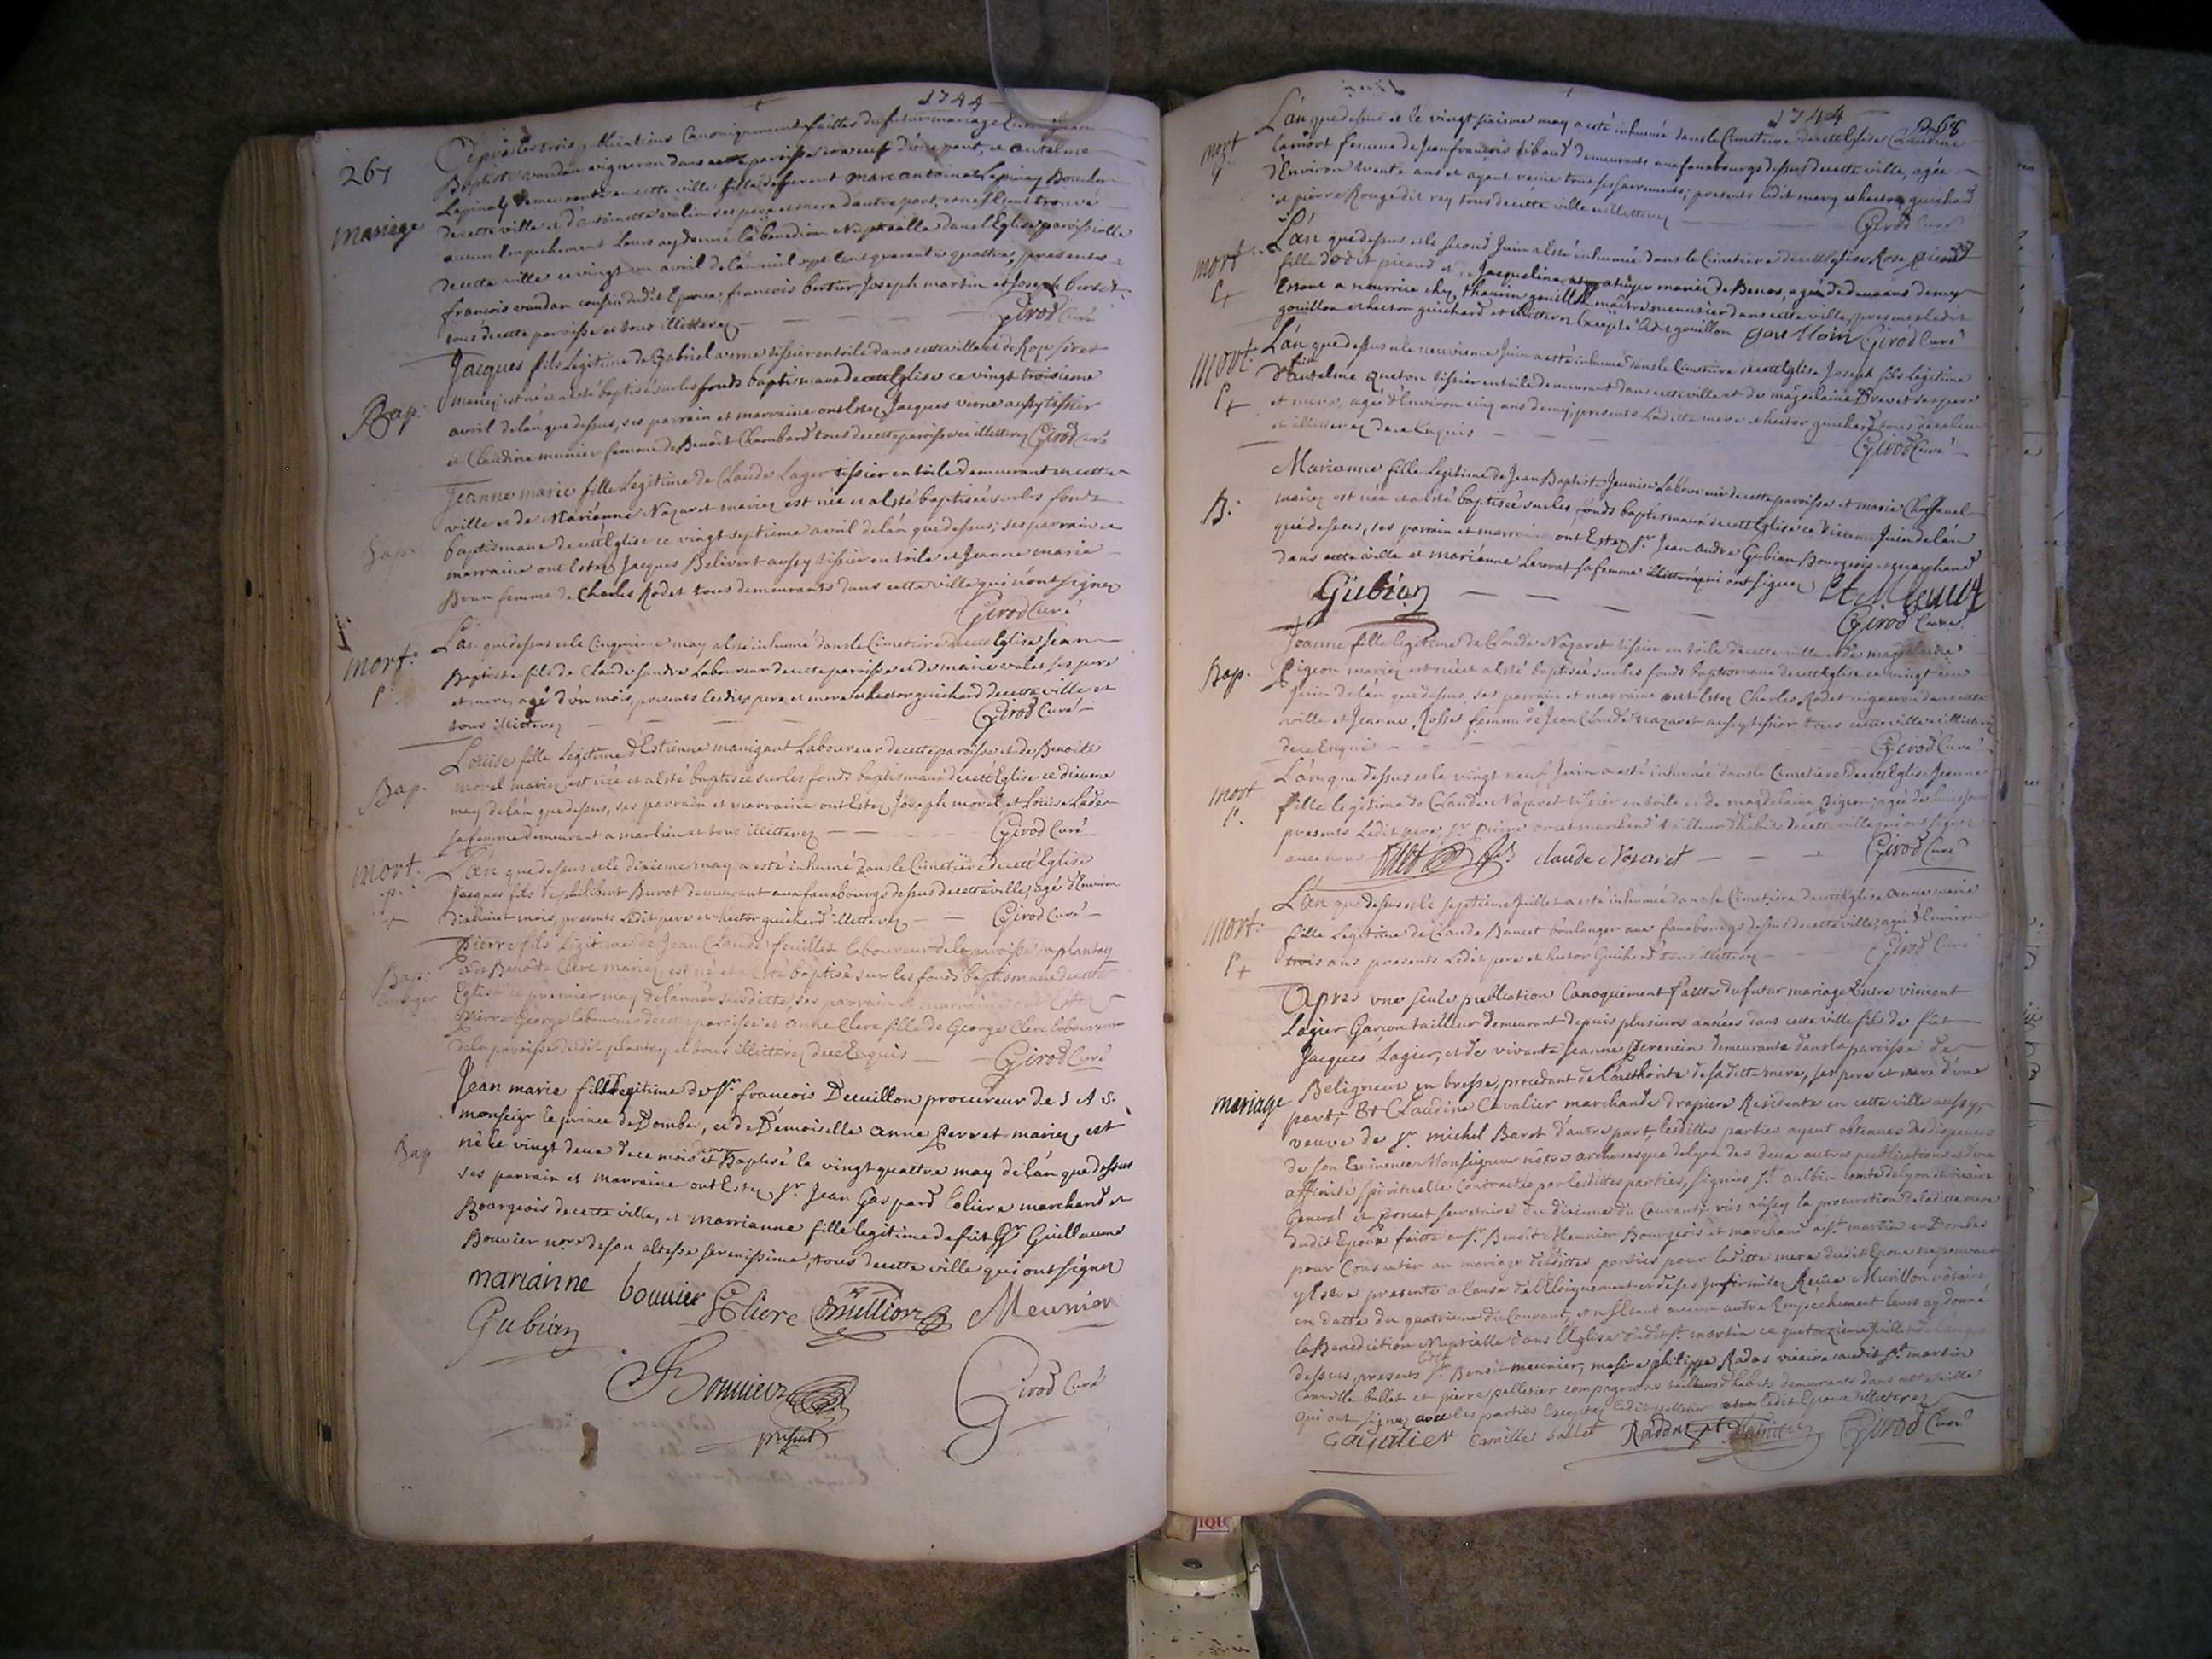 1744
267
mariage
Après les trois publications Canoniquement faittes du futur mariage Entre Jean
Baptiste vaudan vigneron dans cette paroisse veuf d'une part, et antelme
Lepinay demeurante en cette ville fille de deffunt marc antoine Lepinay Boucher
de cette ville et d'antoinette valin ses pere et mere d'autre part, et ne s'étant trouvé
aucun Empechement Leurs ay donné la benediction Nuptialle dans l'Eglise paroissialle
de cette ville ce vingt un avril de l'an mil sept cent quarante quattre, presents
francois vaudan cousin dudit Epoux, francois bertier Joseph martin et Joseph berset
tous de cette paroisse et tous illitterez Girod Curé
Bap:
Jacques fils Legitime de Gabriel verne tissier en toile dans cette ville et de Rose siret
mariez est né et a esté baptisé sur les fonds baptismaux de cette Eglise ce vingt troisieme
avril de l'an que dessus, ses parrain et marraine ont Estez Jacques verne aussy tissier
et Claudine munier femme de Benoit Chambard tous de cette paroisse et illitterez Girod Curé
Bap:
Jeanne marie fille Legitime de Claude Lager tissier en toile demeurant en cette
ville et de Marianne Nazaret mariez est née et a esté baptisée sur les fonds
baptismaux de cette Eglise ce vingt septieme avril de l'an que dessus; ses parrain et
marraine ont Estez Jacques Belivert aussy tissier en toile et Jeanne marie
Brun femme de Charles Rodet tous demeurants dans cette ville qui n'ont signez
Girod Curé
mort:
P
L'an que dessus et le Cinquieme may a esté inhumé dans le Cimetiere de cette Eglise Jean
Baptiste fils de Claude Laboureur de cette paroisse et de marie valet, ses pere
et mere, agé d'un mois, presents lesdits pere et mere et hector guichard de cette ville et
tous illitterez Girod Curé
Bap.
Louise fille Legitime d'Estienne manigant Laboureur de cette paroisse et de Benoite
morel mariez est née et a esté baptisée sur les fonds baptismaux de cette Eglise ce dixieme
may de l'an que dessus, ses parrain et marraine ont Estez Joseph morel et Louise
sa femme demeurant a marlieux et tous illitterez Girod Curé
mort:
L'an que dessus et le dixieme may a esté inhumé dans le Cimetiere de cette Eglise
Jacques fils de philibert Burot demeurant aux fauxbourgs dessus de cette ville, agé d'Environ
dixhuit mois, presents Ledit pere et hector guichard illitterez Girod Curé
Bap:
Pierre fils Legitime de Jean Claude feuillet laboureur de la paroisse du plantay
et de Benoite Clerc mariez est né et a esté baptisé sur les fonds baptismaux de cette
Eglise le premier may de l'année susditte, ses parrain et marraine ont Estez
Pierre George laboureur de cette paroisse et anne Clerc fille de George Clerc laboureur
de la paroisse dudit plantay et tous illitterez de ce Enquis Girod Curé
Bap
Jean marie fils Legitime de Sr. francois Decuillon procureur de S A S.
monseigr le prince de Dombes, et de Demoiselle anne Perret mariez, est
né le vingt deux de ce mois de may et Baptisé le vingt quattre may de l'an que dessus
ses parrain et marraine ont Estez Sr. Jean Gaspard Coliere marchand et
Bourgeois de cette ville, et marrianne fille legitime de fut Sr Guillaume
Bouvier nore de son altesse serenissime, tous de cette ville qui ont signez
marianne bouvier Coliere Meunier
Gubian
Bouvier
Girod Curé
present
1744
268
mort
L'an que dessus et le vingt sixieme may a esté inhumée dans le Cimetiere de cette Eglise Claudine
lamort femme de Jean francois tibaud demeurants aux fauxbourgs dessus de cette ville, agée
d'Environ trente ans et ayant receu tous ses sacrements; presents ledit mary et hector guichard
et pierre Rouge dit rey tous de cette ville et illitterez
Girod Curé
mort.
P+
L'an que dessus et le second Juin a esté inhumée dans le Cimetiere de cette Eglise Rose picaud
fille d' picaud et de Jacqueline mariez de Benos, agée de deux ans demy
Etant a nourrice chez thaurin gouillon maitre menuisier dans cette ville, presents ledit
gouillon et hector guichard et illitterez Excepté ledit gouillon gouilloin Girod Curé
mort:
P+
L'an que dessus et le neuvieme Juin a esté inhumé dans le Cimetiere de cette Eglise Joseph fils Legitime
d'antelme queton tissier en toile demeurant dans cette ville et de magdelaine Brevet ses pere
et mere, agé d'Environ cinq ans demy, presents Laditte mere et hector guichard tous de ce lieu
et illitterez de ce Enquis
Girod Curé
B:
Marianne fille Legitime de Jean Baptiste Jeunier Laboureur de cette paroisse et marie Chaffanel
mariez est née et a esté baptisée sur les fonds baptismaux de cette Eglise ce dixieme Juin de l'an
que dessus, ses parrain et marraine ont Estez Sr. Jean andré Gubian Bourgeois et marchand
dans cette ville et marianne Leverat sa femme qui ont signez
Gubian
Girod Curé
Bap.
Jeanne fille legitime de Claude Nazaret tissier en toile de cette ville et de magdelaine
Pigeon mariez est née et a esté baptisée sur les fonds baptismaux de cette Eglise ce vingt un
Juin de l'an que dessus, ses parrain et marraine ont Estez Charles Rodet vigneron dans cette
ville et Jeanne Josset femme de Jean Claude nazaret aussy tissier tous cette ville et illitterez
de ce Enquis Girod Curé
mort
P.
L'an que dessus et le vingt neuf Juin a esté inhumée dans le Cimetiere de cette Eglise Jeanne
fille legitime de Claude Nazaret tissier en toile et de magdelaine Pigeon; agée de huit jours
presents Ledit pere, Sr. Pierre oret marchand tailleur d'habits de cette ville qui ont signez
avec nous claude Nosaret Girod Curé
mort:
P+
L'an que dessus et le septieme Juillet a esté inhumée dans le Cimetiere de cette Eglise anne marie
fille Legitime de Claude Bancet boulanger aux fauxbourgs dessus de cette ville, agée d'Environ
trois ans presents Ledit pere et hector Guichard tous illitterez Girod Curé
mariage
Apres une seule publication Canoquement faitte du futur mariage Entre vincent
Lagier Garçon tailleur demeurant depuis plusieurs années dans cette ville fils de fut
Jacques Lagier, et de vivante Jeanne Perencin demeurante dans la paroisse de
Beligneux en bresse, procedant de l'authorité de saditte mere, ses pere et mere d'une
part, Et Claudine Cavalier marchande drapiere Residente en cette ville aussy,
veuve de Sr. michel Barot d'autre part, lesdittes parties ayant obtenues des dispences
de son Eminence Monseigneur notre archevesque de lyon des deux autres publications et d'une
affinité spirituelle Contractée par lesdittes parties, signées St. aulbin comte de lyon et vicaire
General et poncet secretaire du dixieme du Courant, vus aussy la procuration de laditte mere
dudit Epoux faitte au Sr. Benoit Meunier Bourgeois et marchand a St. martin en Dombes
pour Consentir au mariage desdittes parties pour laditte mere dudit Epoux ne pouvant
y Etre presente a Cause de l'Eloignement et de ses Infirmitez Reçue Murillon notaire,
en datte du quatrieme du Courant, et n'Etant aucun autre Empechement leurs ay donné
la Benediction Nuptielle dans l'Eglise dudit St. martin ce quatorzieme Juillet de l'an que
dessus presents ledit Sr. Benoit meunier, mesire philippe Radas vicaire audit St. martin
Camille ballet et pierre pelletier compagnons tailleurs d'habits demeurants dans cette ville
qui ont signez avec les parties Excepté ledit pelletier et ledit Epoux illitterez
Cavalier Camille balet Girod Curé